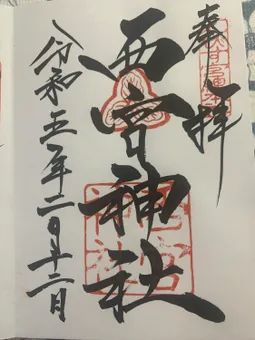 奉拝
西宮神社
令和五年二月十二日